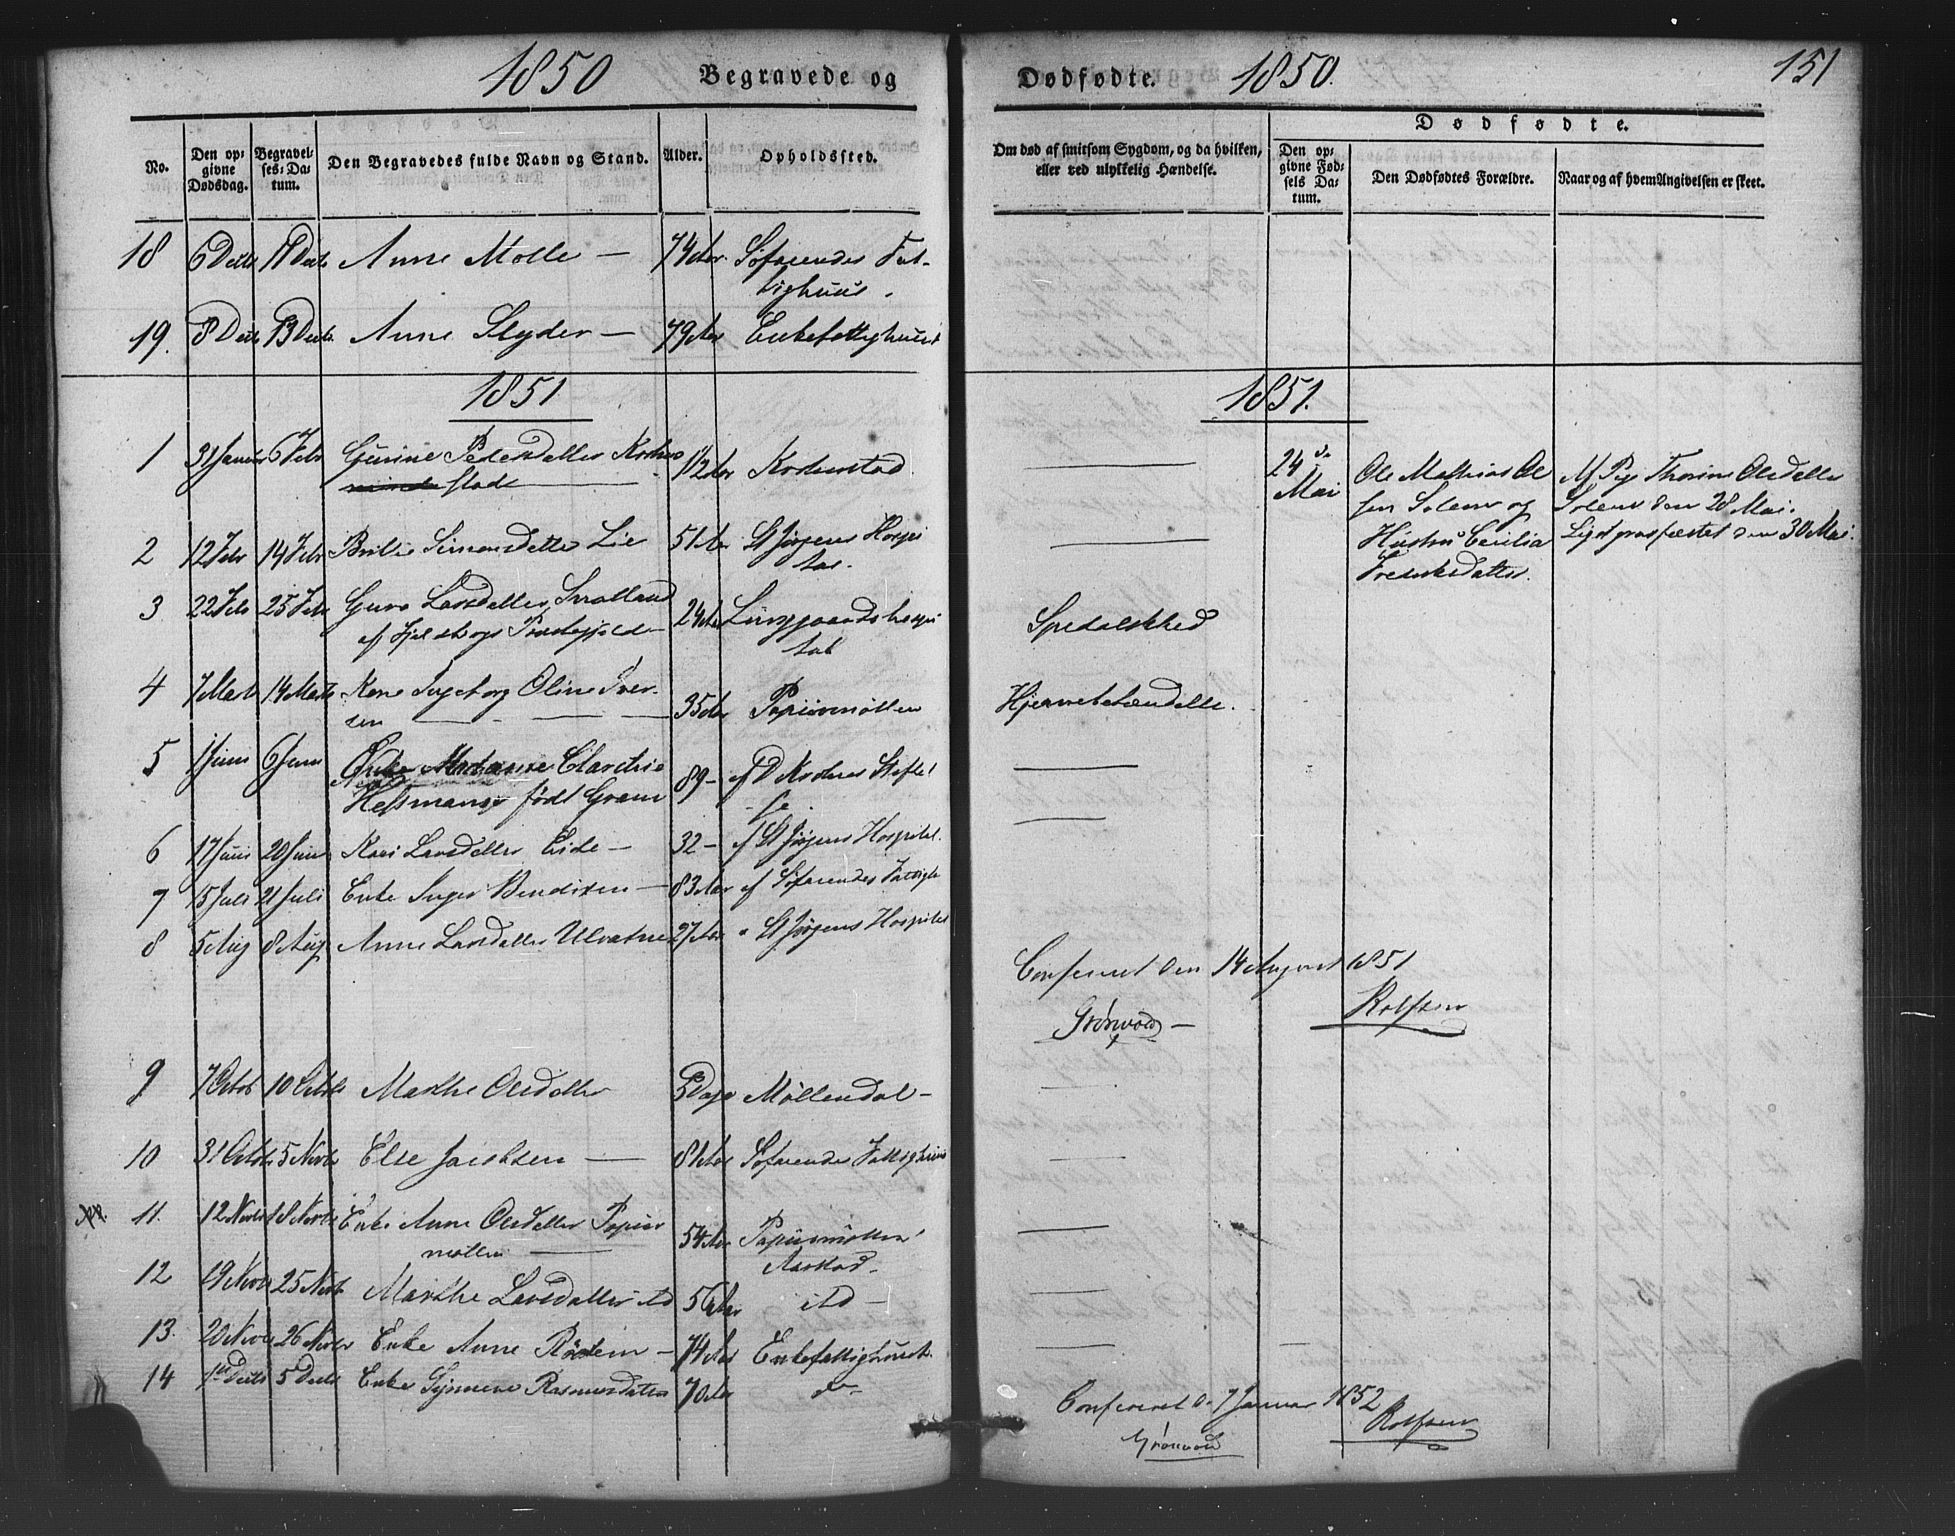 1850 Begravede og Dødfødte. 1850. 151
No. Den opgivne Dødsdag. Begravelses-Datum. Den Begravedes fulde Navn og Stand. Alder. Opholdssted.
Om død af smitsom Sygdom, og da hvilken, eller ved ulykkelig Hændelse.
Dødfødte.
Den opgivne Fødsels Datum. Den Dødfødtes Forældre. Naar og af hvem Angivelsen er skeet.
18 6 Decbr 11 Decbr Anne Molle — 74 Aar Søfarendes Fat-
tighuus.
19. 8 Decbr 13 Decbr Anne Slyder — 79 Aar Enkefattighuset
1851 1851.
1 31 Januar 6 Febr Gurine Pedersdatter Krohn
stad 1/2 Aar Krohnstad
24de
Mai
Ole Mathias Ol
sen Solem og
Hustru Cecilia
Frederiksdatter.
Af Pige Thorine Olsdatter
Solem den 28 Mai.
Liget grasfæstet den 30 Mai.
2 12 Febr 14 Febr Brithe Simonsdatter Lie 51 Aar St Jørgens Hospi
tal.
3 22 Febr 25 Febr Guro Larsdatter Smolland
af Præstegjeld 24 Aar Lungegaardshospi
tal Spedalskhed
4 7 Marts 14 Marts Karen Ingeborg Oline Iver-
sen — 35 Aar Papiirmøllen Hjernebetændelse.
5 1 Juni 6 Juni Enke Madame
født Gram 89 — af D Krohns Stiftel
se
6 17 Juni 20 Juni Kari Larsdatter Eide — 32 — af St Jørgens Hospital.
7 15 Juli 21 Juli Enke Inger Bendixen — 83 Aar af Søfarendes Fattigh
8 5 Aug 8 Aug Anne Larsdatter Ulvatne 27 Aar " St Jørgens Hospital
Confereret den 14 August 1851
Grønvold — Rolfsen
9 7 Octob 10 Octbr Marthe Olsdatter 5 Dage Møllendal —
10 31 Octbr 5 Novbr Else Jacobsen — 81 Aar Søfarendes Fattighuus
11. 12 Novbr 18 Novbr Enke Anne Olsdatter Papiir
møllen — 54 Aar Papiirmøllen
Aarstad.
12 19 Novbr 25 Novbr Marthe Larsdatter 56 Aar itd —
13. 20 Novbr 26 Novbr Enke Anne — 74 Aar Enkefattighuset.
14 1ste Decbr 5 Decbr Enke Rasmusdatter 70 Aar do —
Confereret d. 7 Januar 1852
Grønvold Rolfsen